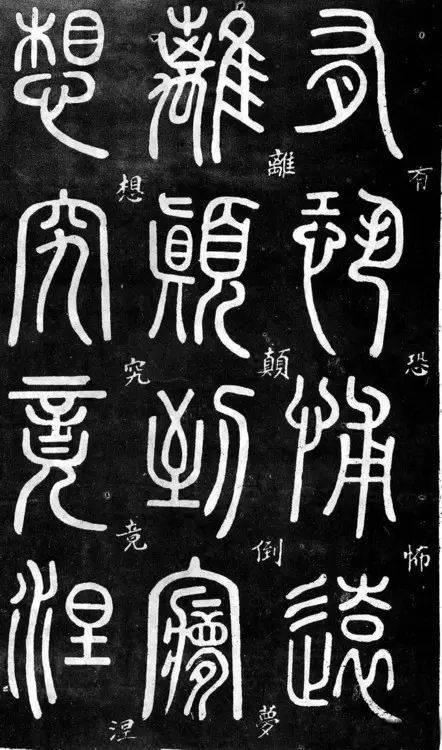 有恐怖遠
有恐怖
離顛倒夢
離顛倒夢
想究竟涅
想究竟涅